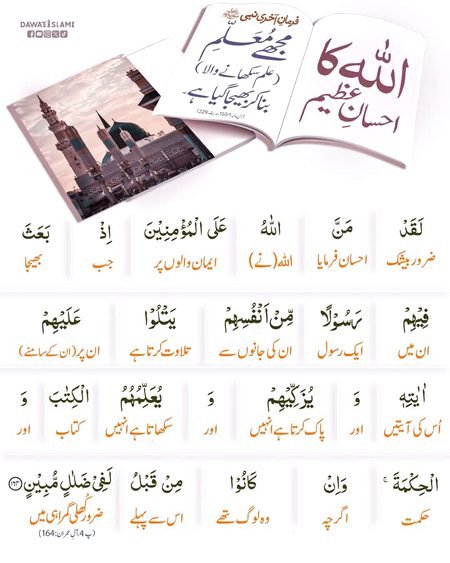 DAWAT-E-ISLAMI
فرمانِ آخری نبی
مجھے مُعَلِّم
(علم سکھانے والا)
بنا کر بھیجا گیا ہے۔
اللہ کا
احسانِ عظیم
لَقَدْ مَنَّ اللهُ عَلَى الْمُؤْمِنِيْنَ اِذْ بَعَثَ
ضرور بیشک احسان فرمایا اللہ (نے) ایمان والوں پر جب بھیجا
فِيْهِمْ رَسُوْلًا مِّنْ اَنْفُسِهِمْ يَتْلُوْا عَلَيْهِمْ
ان میں ایک رسول ان کی جانوں سے تلاوت کرتا ہے ان پر (ان کے سامنے)
اٰيٰتِهٖ وَ يُزَكِّيْهِمْ وَ يُعَلِّمُهُمُ الْكِتٰبَ وَ
اُس کی آیتیں اور پاک کرتا ہے انہیں اور سکھاتا ہے انہیں کتاب اور
الْحِكْمَةَ ۚ وَاِنْ كَانُوْا مِنْ قَبْلُ لَفِیْ ضَلٰلٍ مُّبِيْنٍ ﴿۱۶۴﴾
حکمت اگرچہ وہ لوگ تھے اس سے پہلے ضرور کھلی گمراہی میں
(پ 4، آلِ عمران: 164)